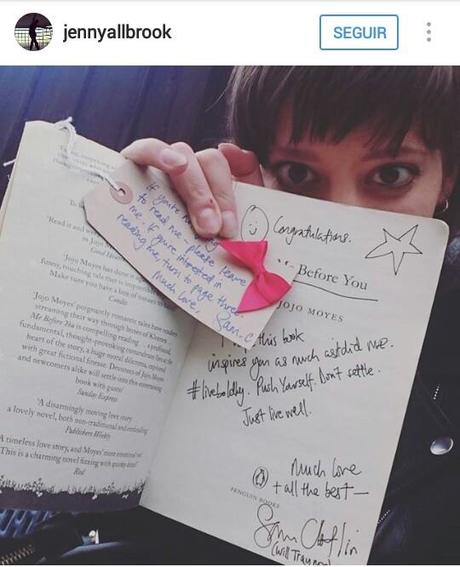 jennyallbrook
SEGUIR
'Read it and
to Jojo M
Good House
'Jojo Moyes has done it
funny, touching tale that is imp
Make sure you have a box of tissues
Candis
'Jojo Moyes' poignantly romantic tales have readers
streaming their way through boxes of Kleenex.
Me Before You is compelling reading
fundamental, thought-provoking conundrum
heart of the story, a huge moral dilemma
with great fictional finesse. Devotees of Jojo Moyes
and newcomers alike will settle into this entertaining
book with gusto'
Sunday Express
'A disarmingly moving love story
a lovely novel, both non-traditional and
Publishers Weekly
timeless love story, and Moyes' most emotional
This is a charming novel fizzing with quirky
Red
If you're
to read me please leave
me. If you're interested in
reading me, turn to page three
Much Love,
Sam C
Congratulations.
Before You
JOJO MOYES
this book
inspires you as much as it did me.
#liveboldly. Push Yourself. Don't settle.
Just live well.
Much love
+ all the best —
PENGUIN BOOKS
Sam Claflin
(Will Traynor)